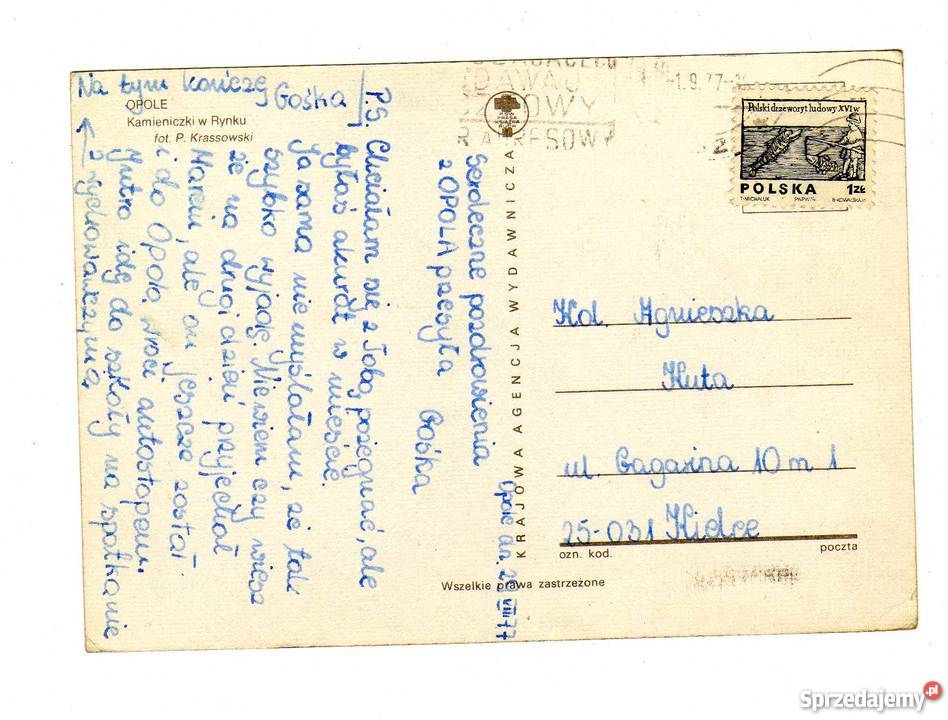 OPOLE
Kamieniczki w Rynku
fot. P. Krassowski
Serdeczne pozdrowienia
z OPOLA przesyła
Gośka
Opole dn. 29 VIII 77
P.S. Chciałam się z Tobą pożegnać, ale
byłaś akurat w mieście.
Ja sama nie myślałam, że tak
szybko wyjadę. Nie wiem czy wiesz
że na drugi dzień przyjechał
Marcin, ale on jeszcze został
i do Opola wróci autostopem.
Jutro idę do szkoły na spotkanie
z wychowawczynią.
Na tym kończę
Gośka
KRAJOWA AGENCJA WYDAWNICZA
DAWAJ
1.9.77
Polski drzeworyt ludowy XVI w.
POLSKA 1 ZŁ
Kol. Agnieszka
Kuta
ul. Gagarina 10 m 1
25-031 Kielce
ozn. kod. poczta
Wszelkie prawa zastrzeżone
Sprzedajemy.pl